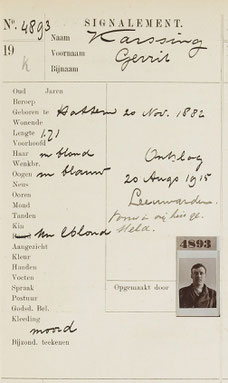 Nº. 4893 SIGNALEMENT.
Naam Karssing
19 Voornaam Gerrit
k Bijnaam
Oud Jaren
Beroep
Geboren te Hattem 20 Nov. 1882
Wonende
Lengte 1.71
Voorhoofd
Haar m blond Ontslag
Wenkbr.
Oogen m blauw 20 Augs 1915
Neus
Ooren Leeuwarden
Mond
Tanden
Kin
blond
Aangezicht
Kleur 4893
Handen
Voeten
Spraak Opgemaakt door
Postuur
Godsd. Bel.
Kleeding
moord
Bijzond. teekenen